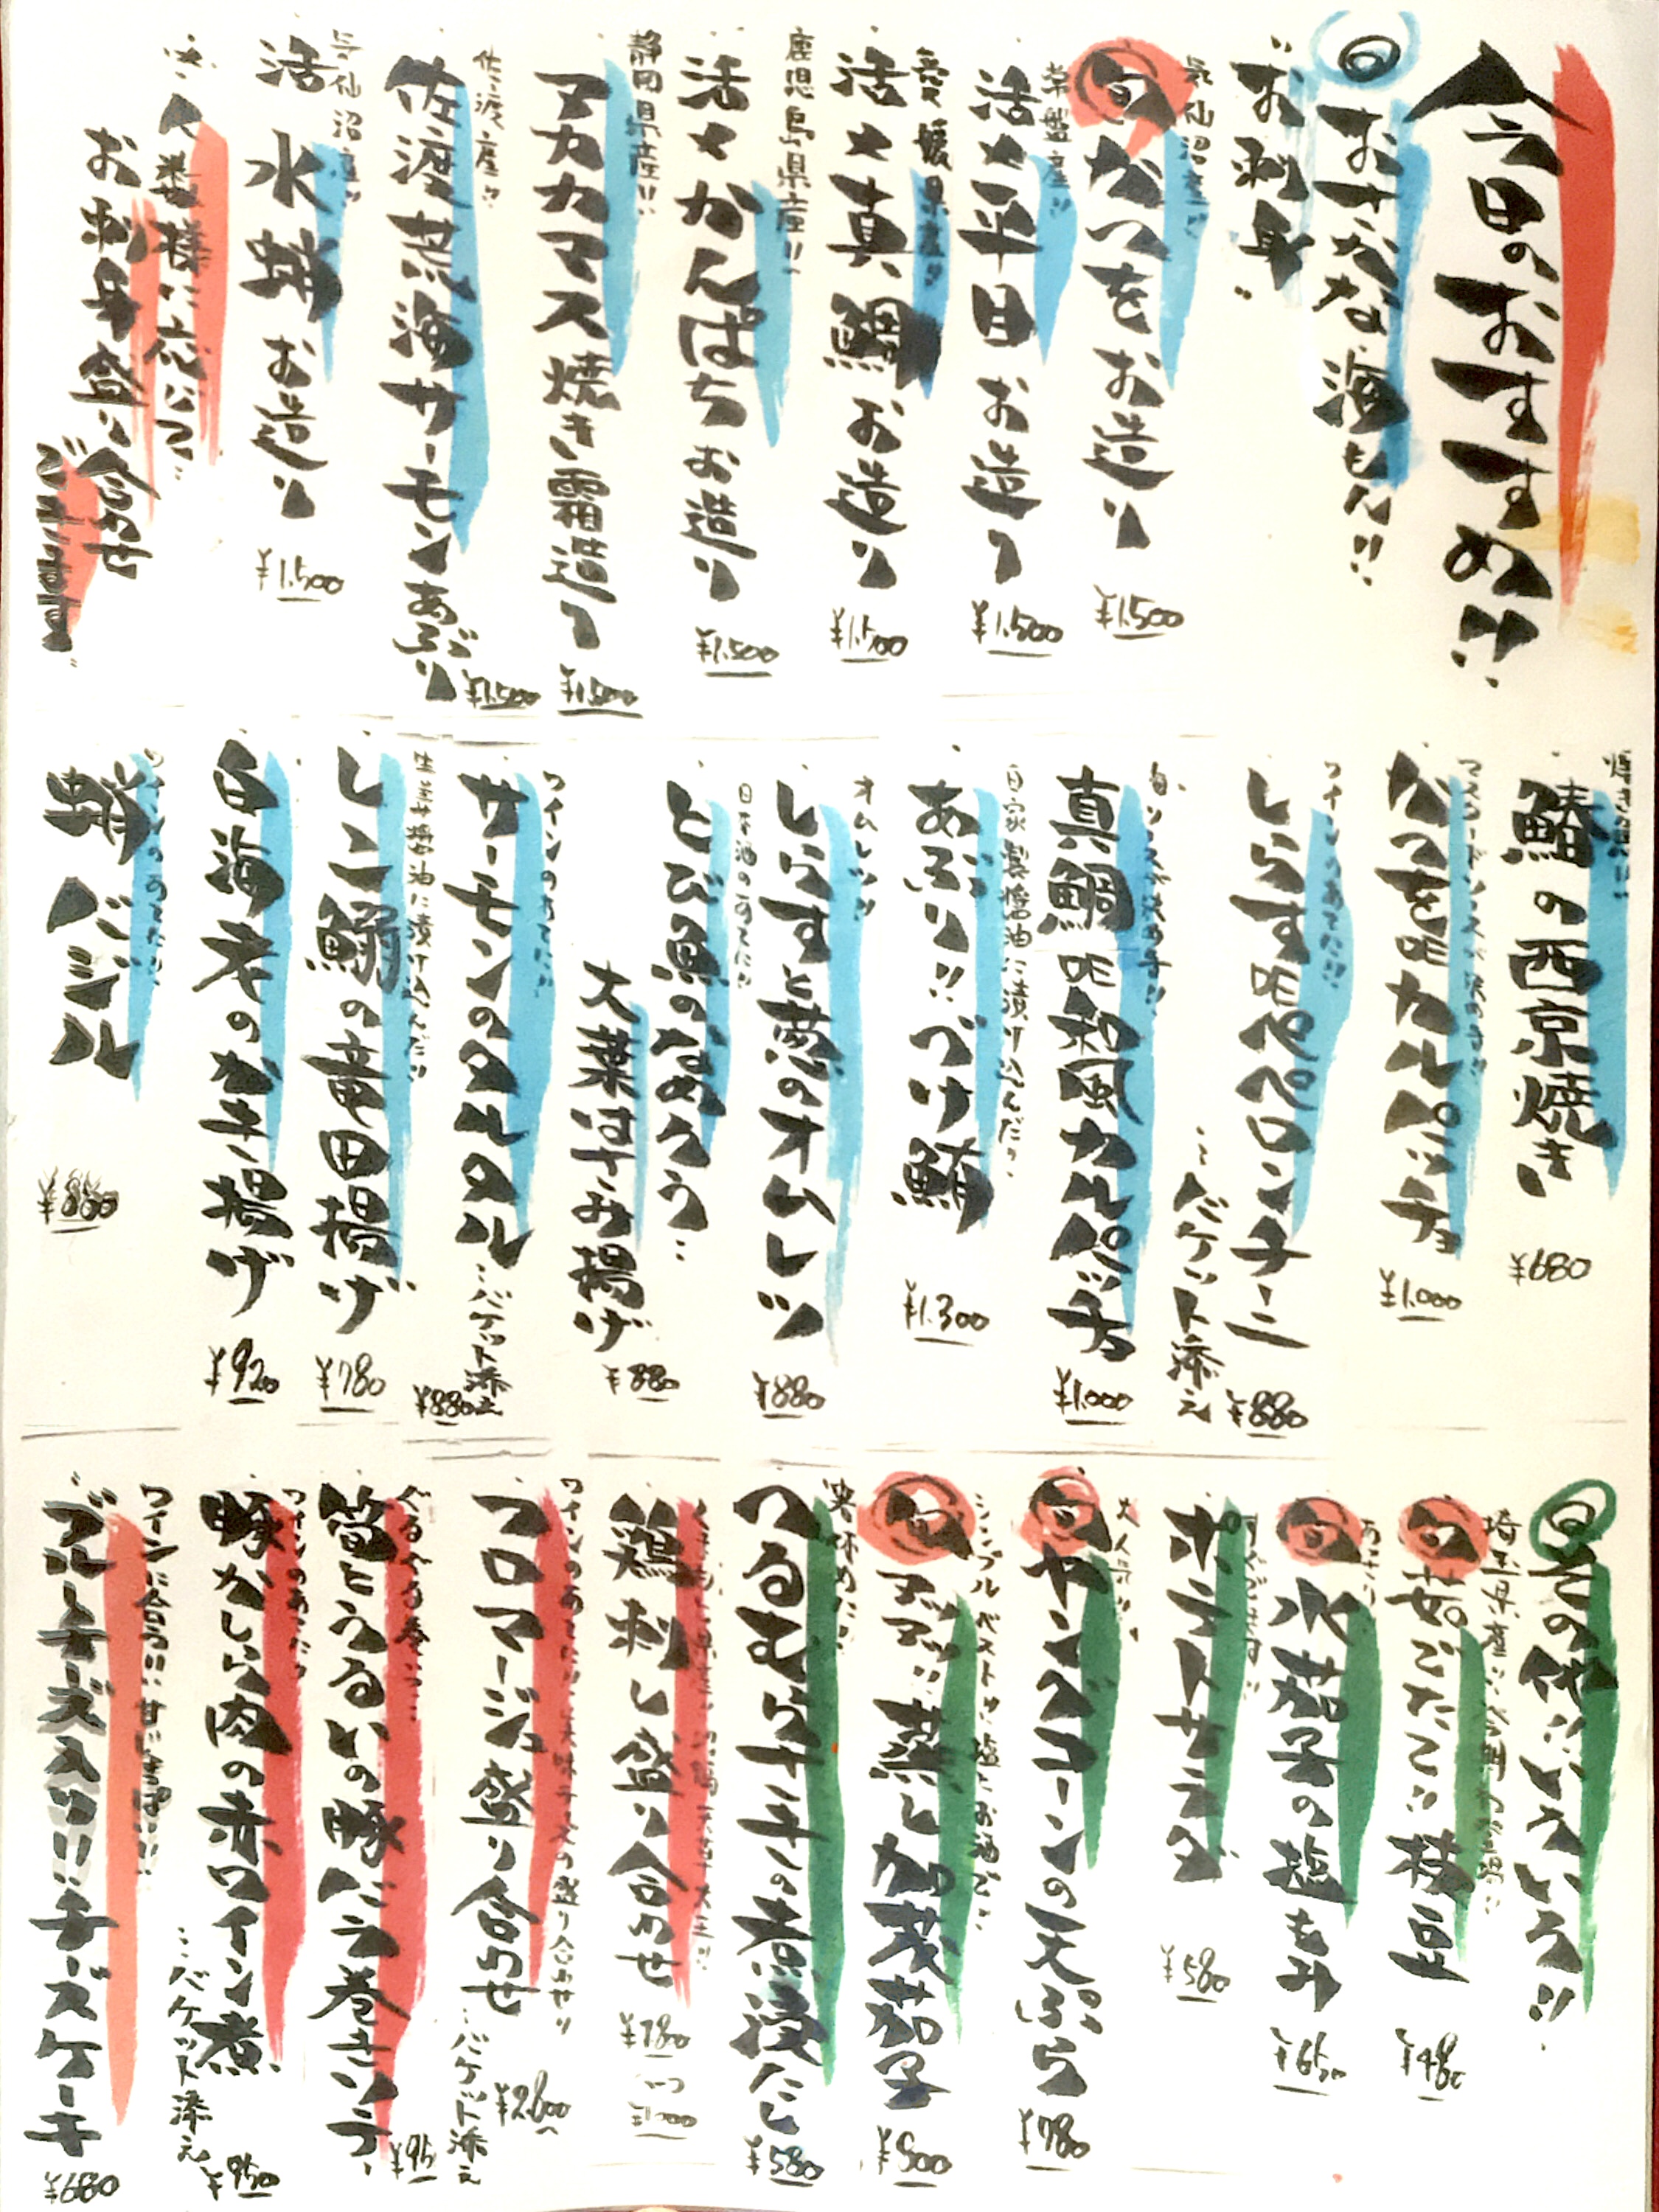 今日のおすすめ!!
おさかな、海もん!!
お刺身
気仙沼産!!
旬かつをお造り
¥1.500
常磐産!!
活〆平目お造り
¥1.500
愛媛県産!!
活〆真鯛お造り
¥1.500
鹿児島県産!!
活〆かんぱちお造り
¥1.500
静岡県産!!
アカカマス焼き霜造り
¥1.500
佐渡産!!
佐渡荒海サーモンあぶり
¥1.500
気仙沼産!!
活水蛸お造り
¥1.500
人数様に応じて…
お刺身盛り合わせ
ございます
鰆の西京焼き
¥680
マスタードソースが決め手!!
かつを的カルパッチョ
¥1.000
ワインのあてに!!
しらす的ペペロンチーニ
…バケット添え
¥880
旬ソースが決め手!!
真鯛的和風カルパッチョ
¥1.000
自家製醤油に漬け込んだ
あぶり!!づけ鮪
¥1.300
オムレツ!!
しらすと葱のオムレツ
¥880
日本酒のあてに!!
とび魚のなめろう…
大葉はさみ揚げ
¥880
ワインのあてに!!
サーモンのタルタル
…バケット添え
¥880
生姜醤油に漬け込んだ!!
しこ鰯の竜田揚げ
¥780
白海老のかき揚げ
¥920
ワインのあてに!!
蛸バジル
¥880
その他いろいろ!!
埼玉県産!!
旬茹でたて!!枝豆
¥480
旬水茄子の塩もみ
¥650
ポテトサラダ
¥580
旬ヤングコーンの天ぷら
¥780
旬アツアツ!!蒸し加茂茄子
¥900
箸休めに!!
つるむらさきの煮浸たし
¥580
鶏刺し盛り合わせ
¥780
フロマージュ盛り合わせ
…バケット添え
¥2.600〜
筍とうるいの豚バラ巻きソテー
¥950
ワインのあてに!!
豚かしら肉の赤ワイン煮
…バケット添え
¥950
ワインに合う!!
ブルーチーズ入り!!チーズケーキ
¥680